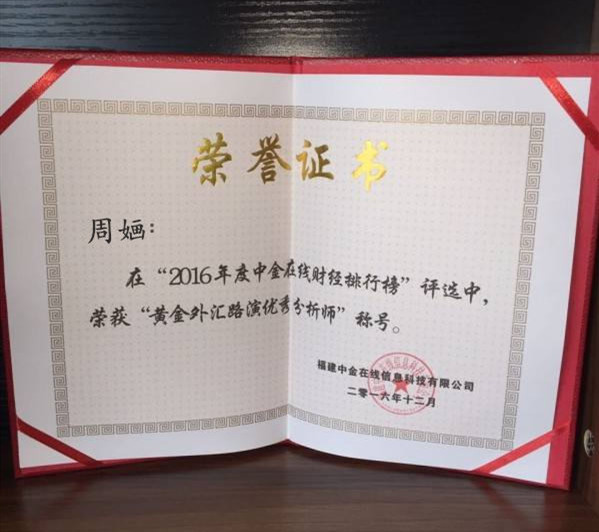 荣誉证书
周婳:
在“2016年度中金在线财经排行榜”评选中,
荣获“黄金外汇路演优秀分析师”称号。
福建中金在线信息科技有限公司
二零一六年十二月